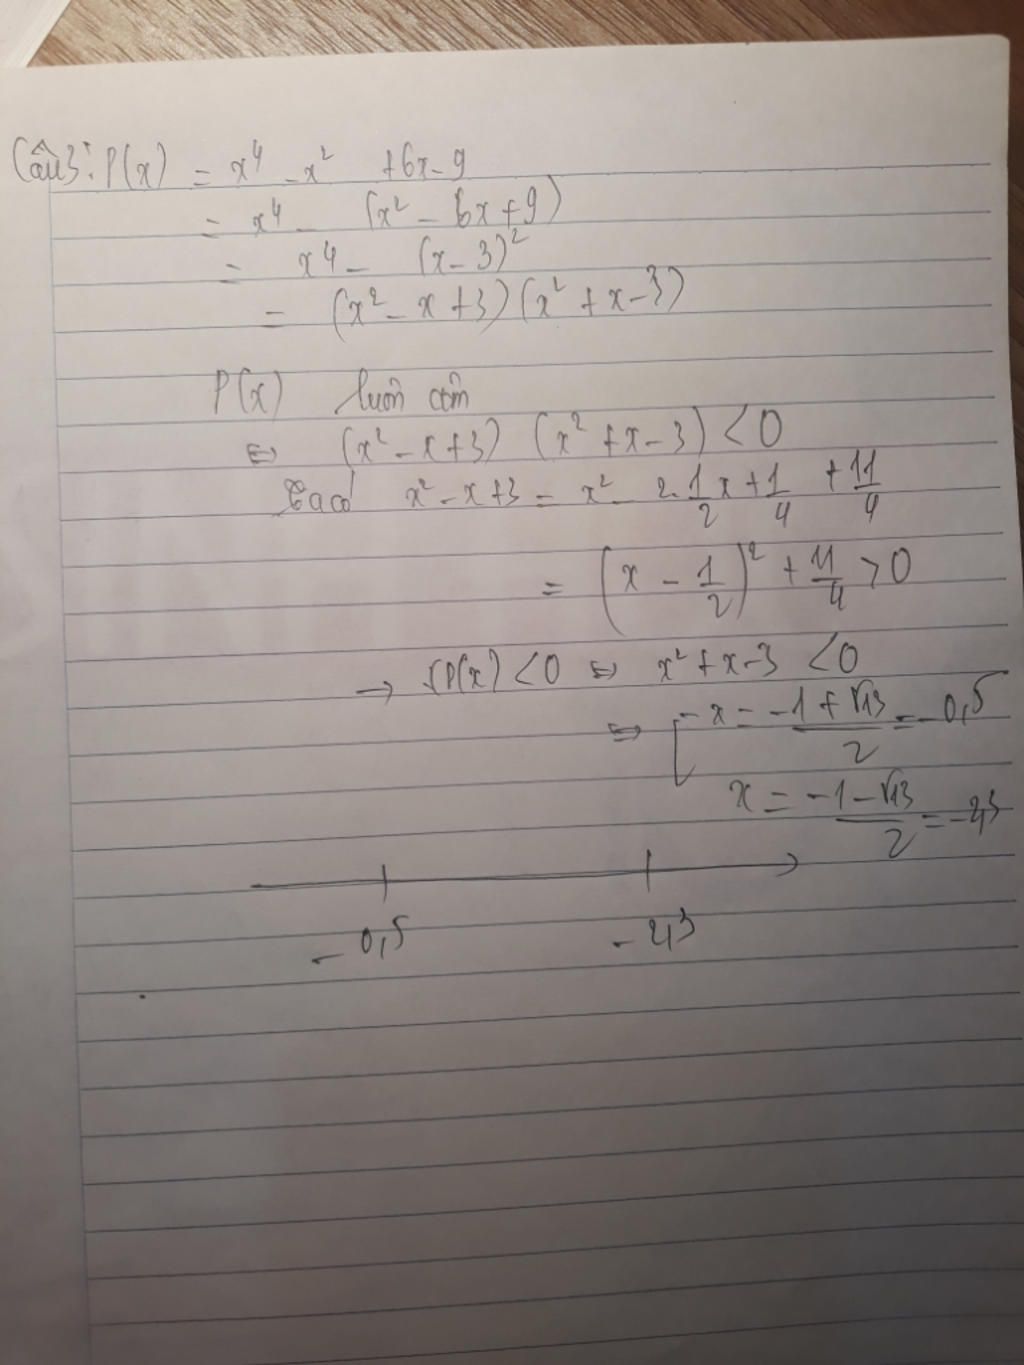 Câu3: P(x) = x⁴ - x² + 6x - 9
= x⁴ - (x² - 6x + 9)
= x⁴ - (x - 3)²
= (x² - x + 3)(x² + x - 3)
P(x) luôn âm
⇔ (x² - x + 3) (x² + x - 3) < 0
Ta có x² - x + 3 = x² - 2.1/2 x + 1/4 + 11/4
= (x - 1/2)² + 11/4 > 0
→ P(x) < 0 ⇔ x² + x - 3 < 0
⇔ [ x = -1 + √13 / 2 = -0,5
x = -1 - √13 / 2 = -2,3
-0,5 -2,3